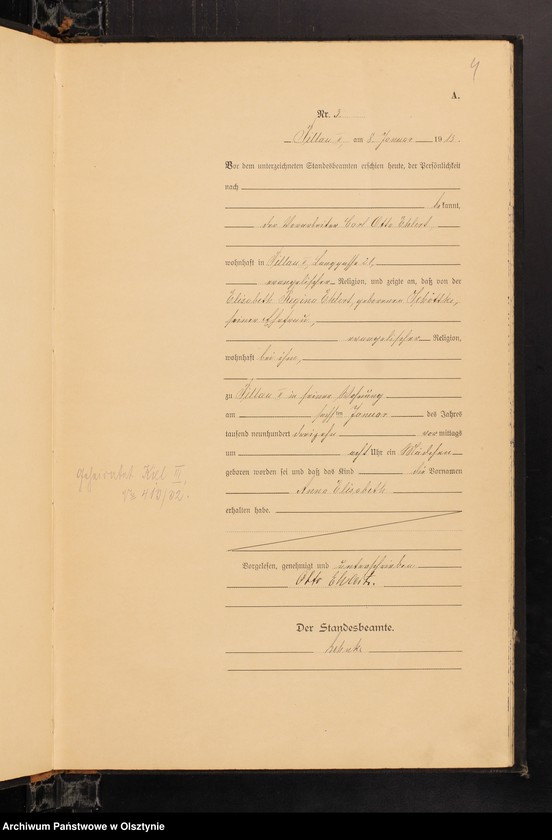 4
A.
Nr. 3.
Pillau I, am 8. Januar 1913.
Vor dem unterzeichneten Standesbeamten erschien heute, der Persönlichkeit
nach
bekannt,
der Otto Ehlert,
wohnhaft in Pillau I, Langgasse 21,
evangelischer Religion, und zeigte an, daß von der
Elisabeth Regina Ehlert, geborenen
seiner Ehefrau,
evangelischer Religion,
wohnhaft bei ihm,
zu Pillau I in seiner Wohnung
am Januar des Jahres
tausend neunhundert dreizehn vormittags
um acht Uhr ein Mädchen
geboren worden sei und daß das Kind die Vornamen
Anna Elisabeth
erhalten habe.
Geheiratet Kiel II,
418/32.
Vorgelesen, genehmigt und unterschrieben
Otto Ehlert.
Der Standesbeamte.
Archiwum Państwowe w Olsztynie